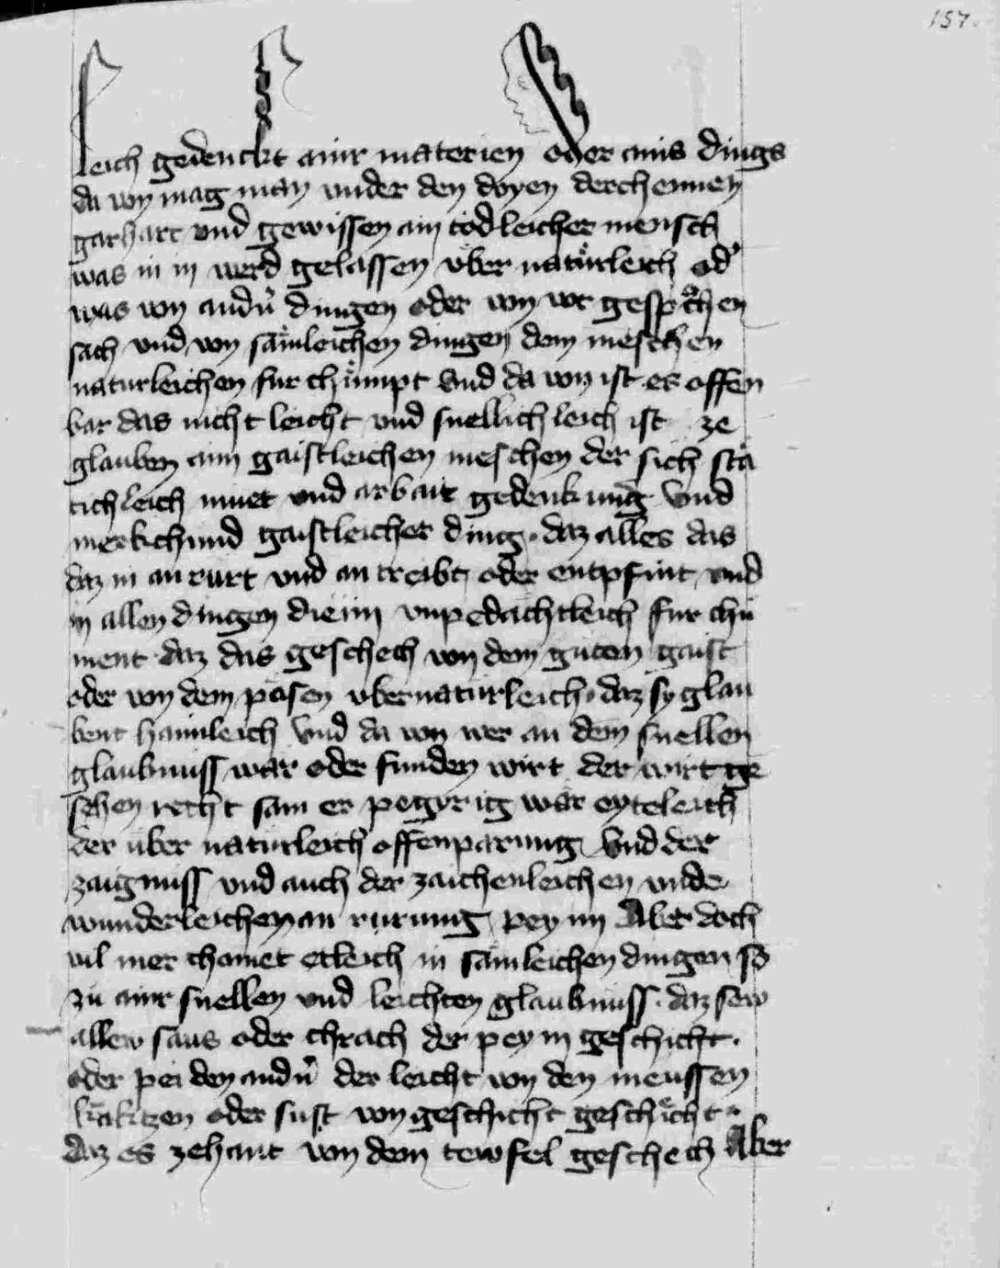 157.
leich gedenckt ainr materien oder ains dings
da von mag man under den doyen derchennen
gar hart und gewissen ain todleicher mensch
was in in werd gelassen über natürleich od'
was von andn̄ dingen oder von vor gesprochen
sach und von sämleichen dingen dem meschen
natürleichen für chümpt Und da von ist es offen
bar das nicht leicht und snellichleich ist ze
glauben aim gaistleichen meschen der sich stä
tichleich muet und arbait gedenkung Und
merkchund gaistleicher ding · daz alles das
daz in an rürt und an treibt oder entpfint und
in allen dingen die im unpedächtleich für chü
ment · daz das geschech von dem guten gaist
oder von dem pösen ubernatürleich · daz sy glau
bent haimleich Und da von wer an dem snellen
glaubnuss wär oder funden wirt der wirt ge
sehen recht sam er pegyrig wär eyteleich
der über natürleich offenparung Und der
zaignuss und auch der zaichenleichen unde
wunderleichen an rürung pey im Aber doch
vil mer chomet etleich in sämleichen dingen so
zu ainr snellen und leichten glaubnuss · daz sew
allew saus oder chrach der pey in geschicht ·
oder pei den andn̄ der leicht von den meussen
kräkitzen oder sust von geschicht geschicht ·
daz es zehant von dem tewfel geschech Aber